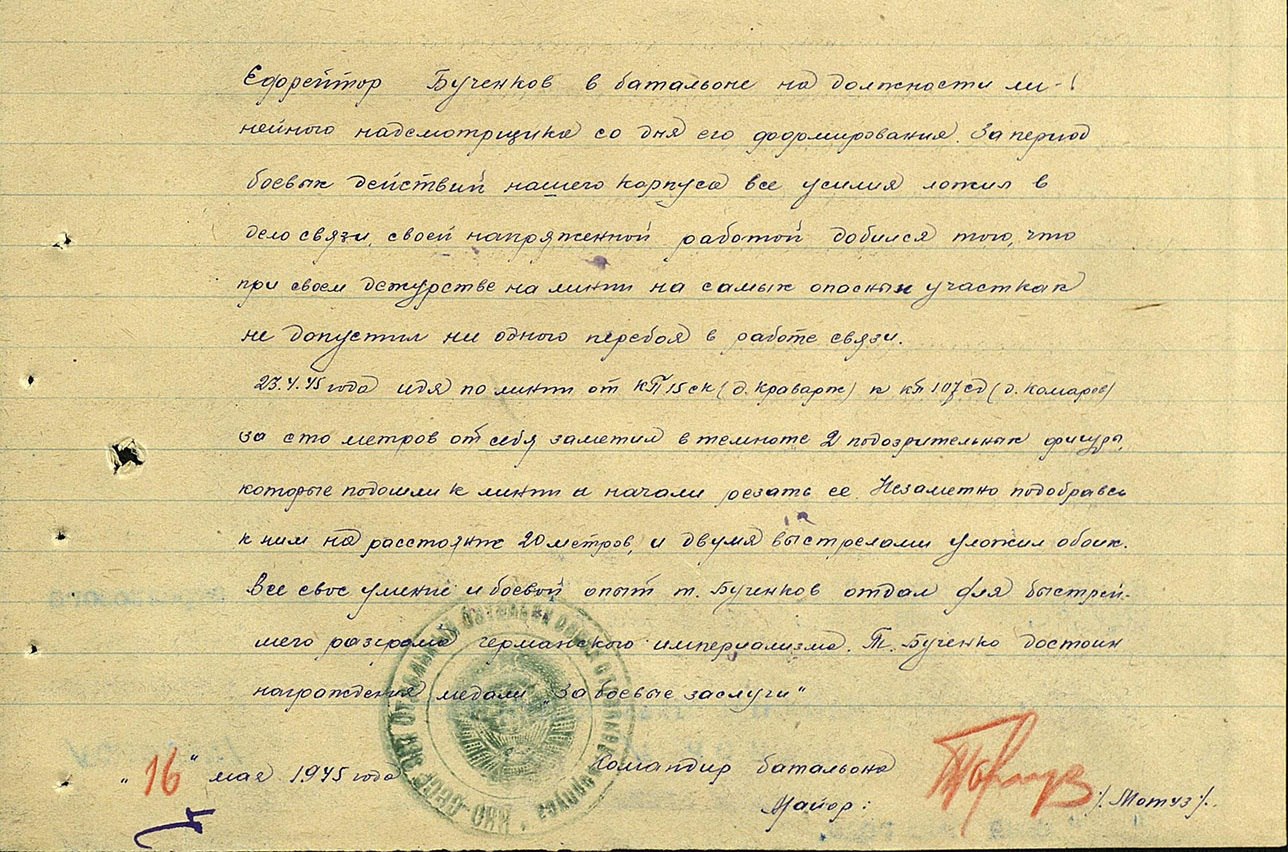 Ефрейтор Бученков в батальоне на должности ли-
нейного надсмотрщика со дня его формирования. За период
боевых действий нашего корпуса все усилия ложил в
дело связи, своей напряженной работой добился того, что
при своем дежурстве на линии на самых опасных участках
не допустил ни одного перебоя в работе связи.
23.4.45 года идя по линии от КП 15 ск (д. Краварж) к кп 107 сд (д. Комаров)
за сто метров от себя заметил в темноте 2 подозрительных фигуры,
которые подошли к линии и начали резать ее. Незаметно подобравсь
к ним на расстояние 20 метров, и двумя выстрелами уложил обоих.
Все свое умение и боевой опыт т. Бученков отдал для быстрей-
шего разгрома германского империализма. Т. Бученко достоин
награждения медали „За боевые заслуги"
Командир батальона
„16" мая 1945 года
Майор: /Мотуз/.
НКО СССР